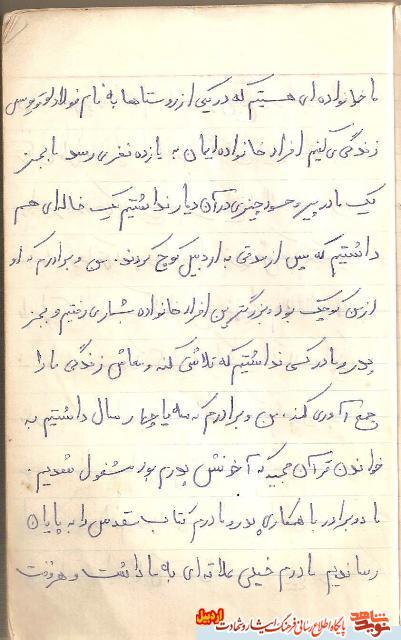 ما خانواده ای هستیم که در یکی از روستاها به نام فولادلو
زندگی می کنیم افراد خانواده ایمان به یازده نفری رسد ما بجز
یک مادر پیر و چیزی در آن دیار نداشتیم یک خاله ای هم
داشتیم که پس از مدتی به اردبیل کوچ کردند. من و برادرم که او
از من کوچک بود بزرگترین افراد خانواده بشماری رفتیم و بجز
پدر و مادر کسی نداشتیم که تلاش کند و معاش زندگی ما را
جمع آوری کند. من و برادرم که سه یا چهار سال داشتیم به
خواندن قرآن مجید که آخوندش پدرم بود مشغول شدیم.
ما دو برادر با همکاری پدر و مادرم کتاب مقدس را به پایان
رساندیم مادرم خیلی علاقه ای به ما داشت و هر وقت
نوید شاهد
پایگاه اطلاع رسانی فرهنگ ایثار و شهادت
اردبیل